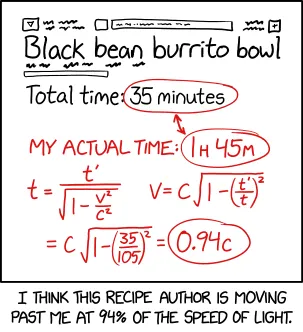 Black bean burrito bowl
Total time: 35 minutes
MY ACTUAL TIME: 1H 45M
t = t' / √(1 - v²/c²)    V = C √(1 - (t'/t)²)
= C √(1 - (35/105)²) = 0.94c
I THINK THIS RECIPE AUTHOR IS MOVING
PAST ME AT 94% OF THE SPEED OF LIGHT.